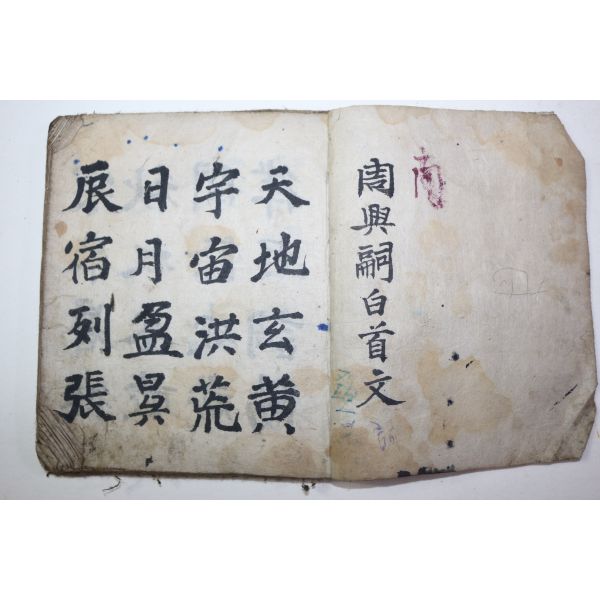 南
周興嗣白首文
天地玄黄
宇宙洪荒
日月盈昃
辰宿列張